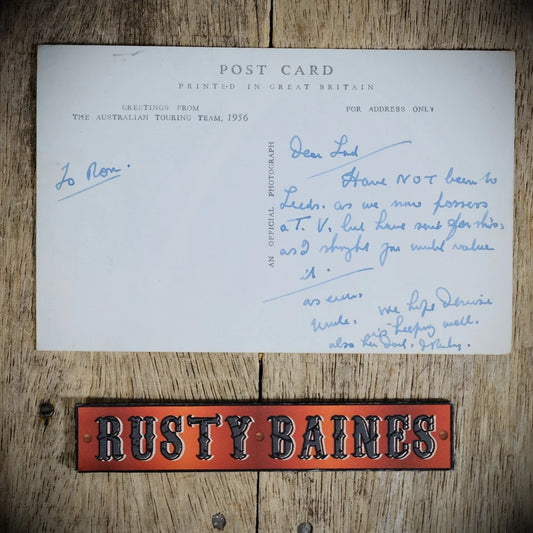 POST CARD
PRINTED IN GREAT BRITAIN
GREETINGS FROM
THE AUSTRALIAN TOURING TEAM, 1956
FOR ADDRESS ONLY
AN OFFICIAL PHOTOGRAPH
To Ron.
Dear Lad
Have NOT been to
Leeds. as we now possess
a T.V. but have sent for this
as I thought you might value
it.
as ever
Uncle.
We hope Denise
is keeping well.
also her Dad.
RUSTY BAINES